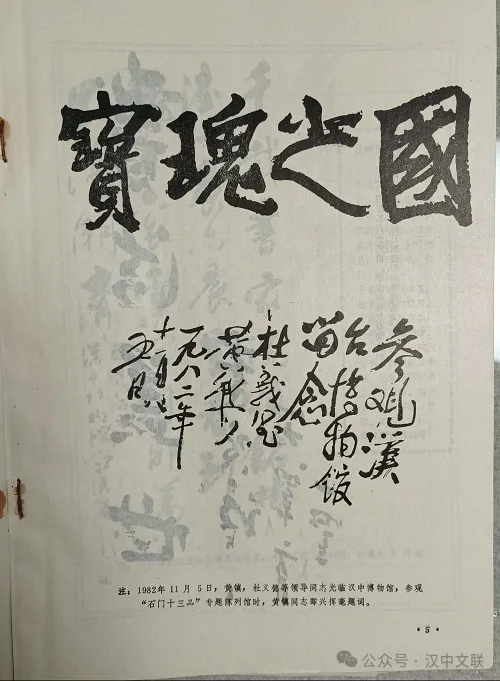 國之瑰寶
参观漢
台博物馆
留念
杜義德
黄镇
一九八二年
十一月
五日
注：1982年11月5日，黄镇，杜义德等领导同志光临汉中博物馆，参观
“石门十三品”专题陈列馆时，黄镇同志即兴挥毫题词。
·5·
公众号·汉中文联